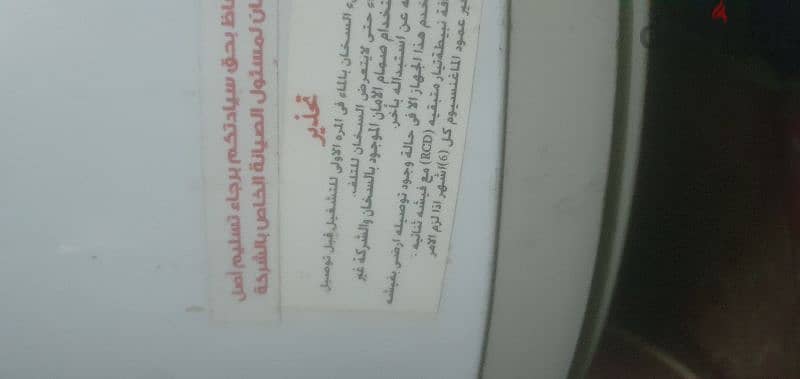 ـاظ بحق سيادتكم برجاء تسليم أصل
ـان لمسئول الصيانة الخاص بالشركة
تحذير
ـىء السخان بالماء فى المره الاولى للتشغيل قبل توصيل
ـاء حتى لايتعرض السخان للتلف.
ـتخدام صمام الامان الموجود بالسخان والشركة غير
ـه عن استبداله بأخر.
ـخدم هذا الجهاز الا فى حالة وجود توصيله ارضى بفيشه
ـافة نبيطة تيار متبقيه (RCD) مع فيشه ثنائيه.
ـيير عمود الماغنسيوم كل (6) اشهر اذا لزم الامر